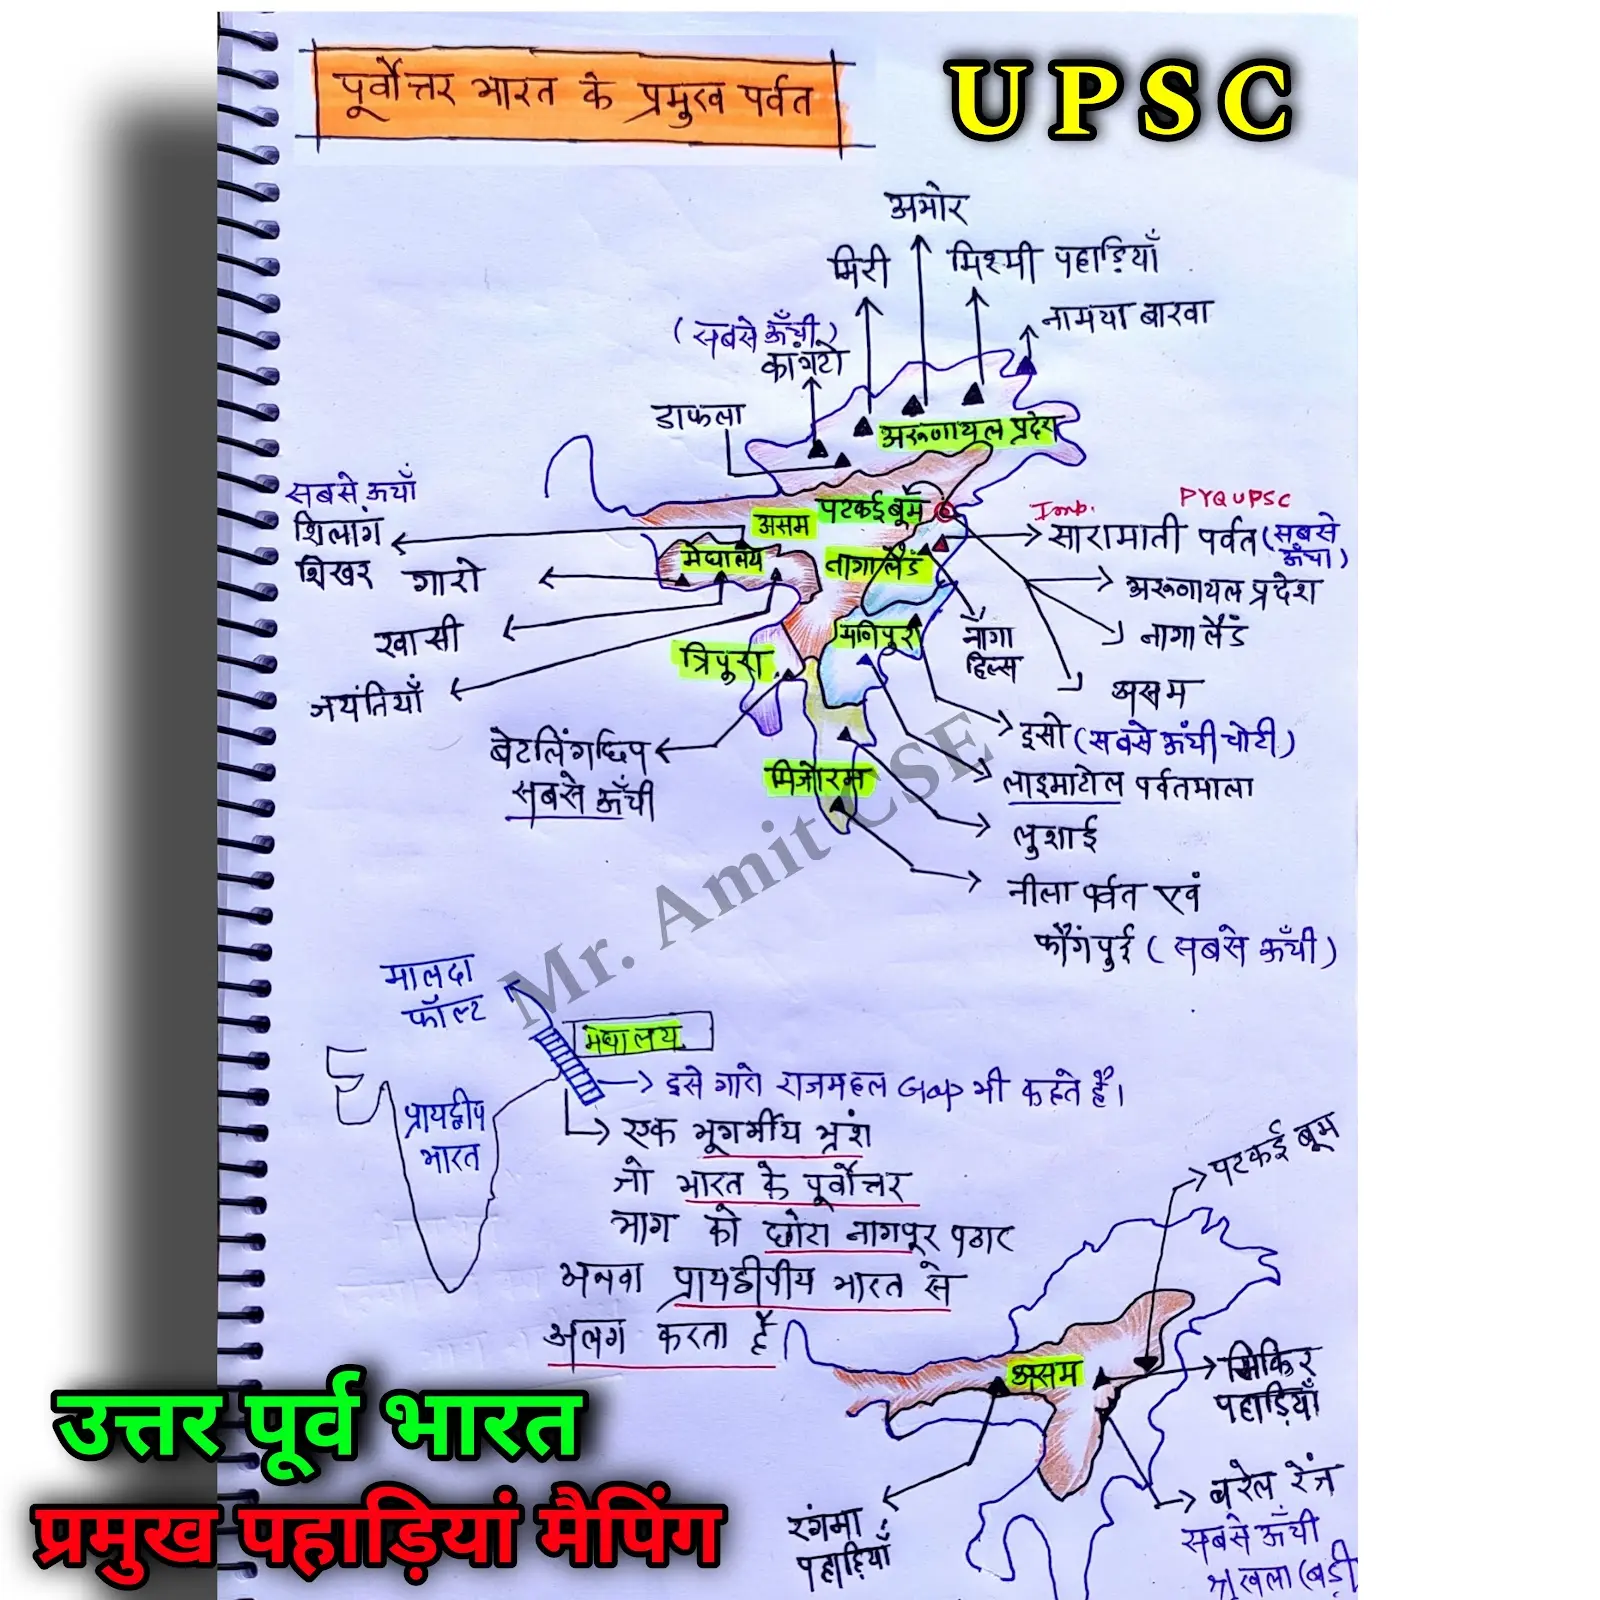 पूर्वोत्तर भारत के प्रमुख पर्वत
UPSC
अभोर
मिरी
मिश्मी पहाड़ियाँ
नामचा बारवा
(सबसे ऊँची)
कांगटो
डाफला
अरूणाचल प्रदेश
सबसे ऊचाँ
शिलांग
शिखर
गारो
खासी
जयंतियाँ
असम
पटकई बूम
मेघालय
नागालैंड
Imp.
PYQ UPSC
सारामाती पर्वत (सबसे
ऊँचा)
अरूणाचल प्रदेश
नागालैंड
असम
नागा
हिल्स
त्रिपुरा
मणिपुर
बेटलिंगछिप
सबसे ऊँची
मिजोरम
इसो (सबसे ऊँची चोटी)
लाइमाटोल पर्वतमाला
लुशाई
नीला पर्वत एवं
फौंगपुई (सबसे ऊँची)
Mr. Amit CSE
मालदा
फॉल्ट
मेघालय
इसे गारो राजमहल Gap भी कहते हैं।
प्रायद्वीप
भारत
एक भूगर्भीय भ्रंश
जो भारत के पूर्वोत्तर
भाग को छोटा नागपुर पठार
अथवा प्रायद्वीपीय भारत से
अलग करता है
पटकई बूम
असम
मिकिर
पहाड़ियाँ
रंगमा
पहाड़ियाँ
बरेल रेंज
सबसे ऊँची
श्रृखला (बड़ी
उत्तर पूर्व भारत
प्रमुख पहाड़ियां मैपिंग